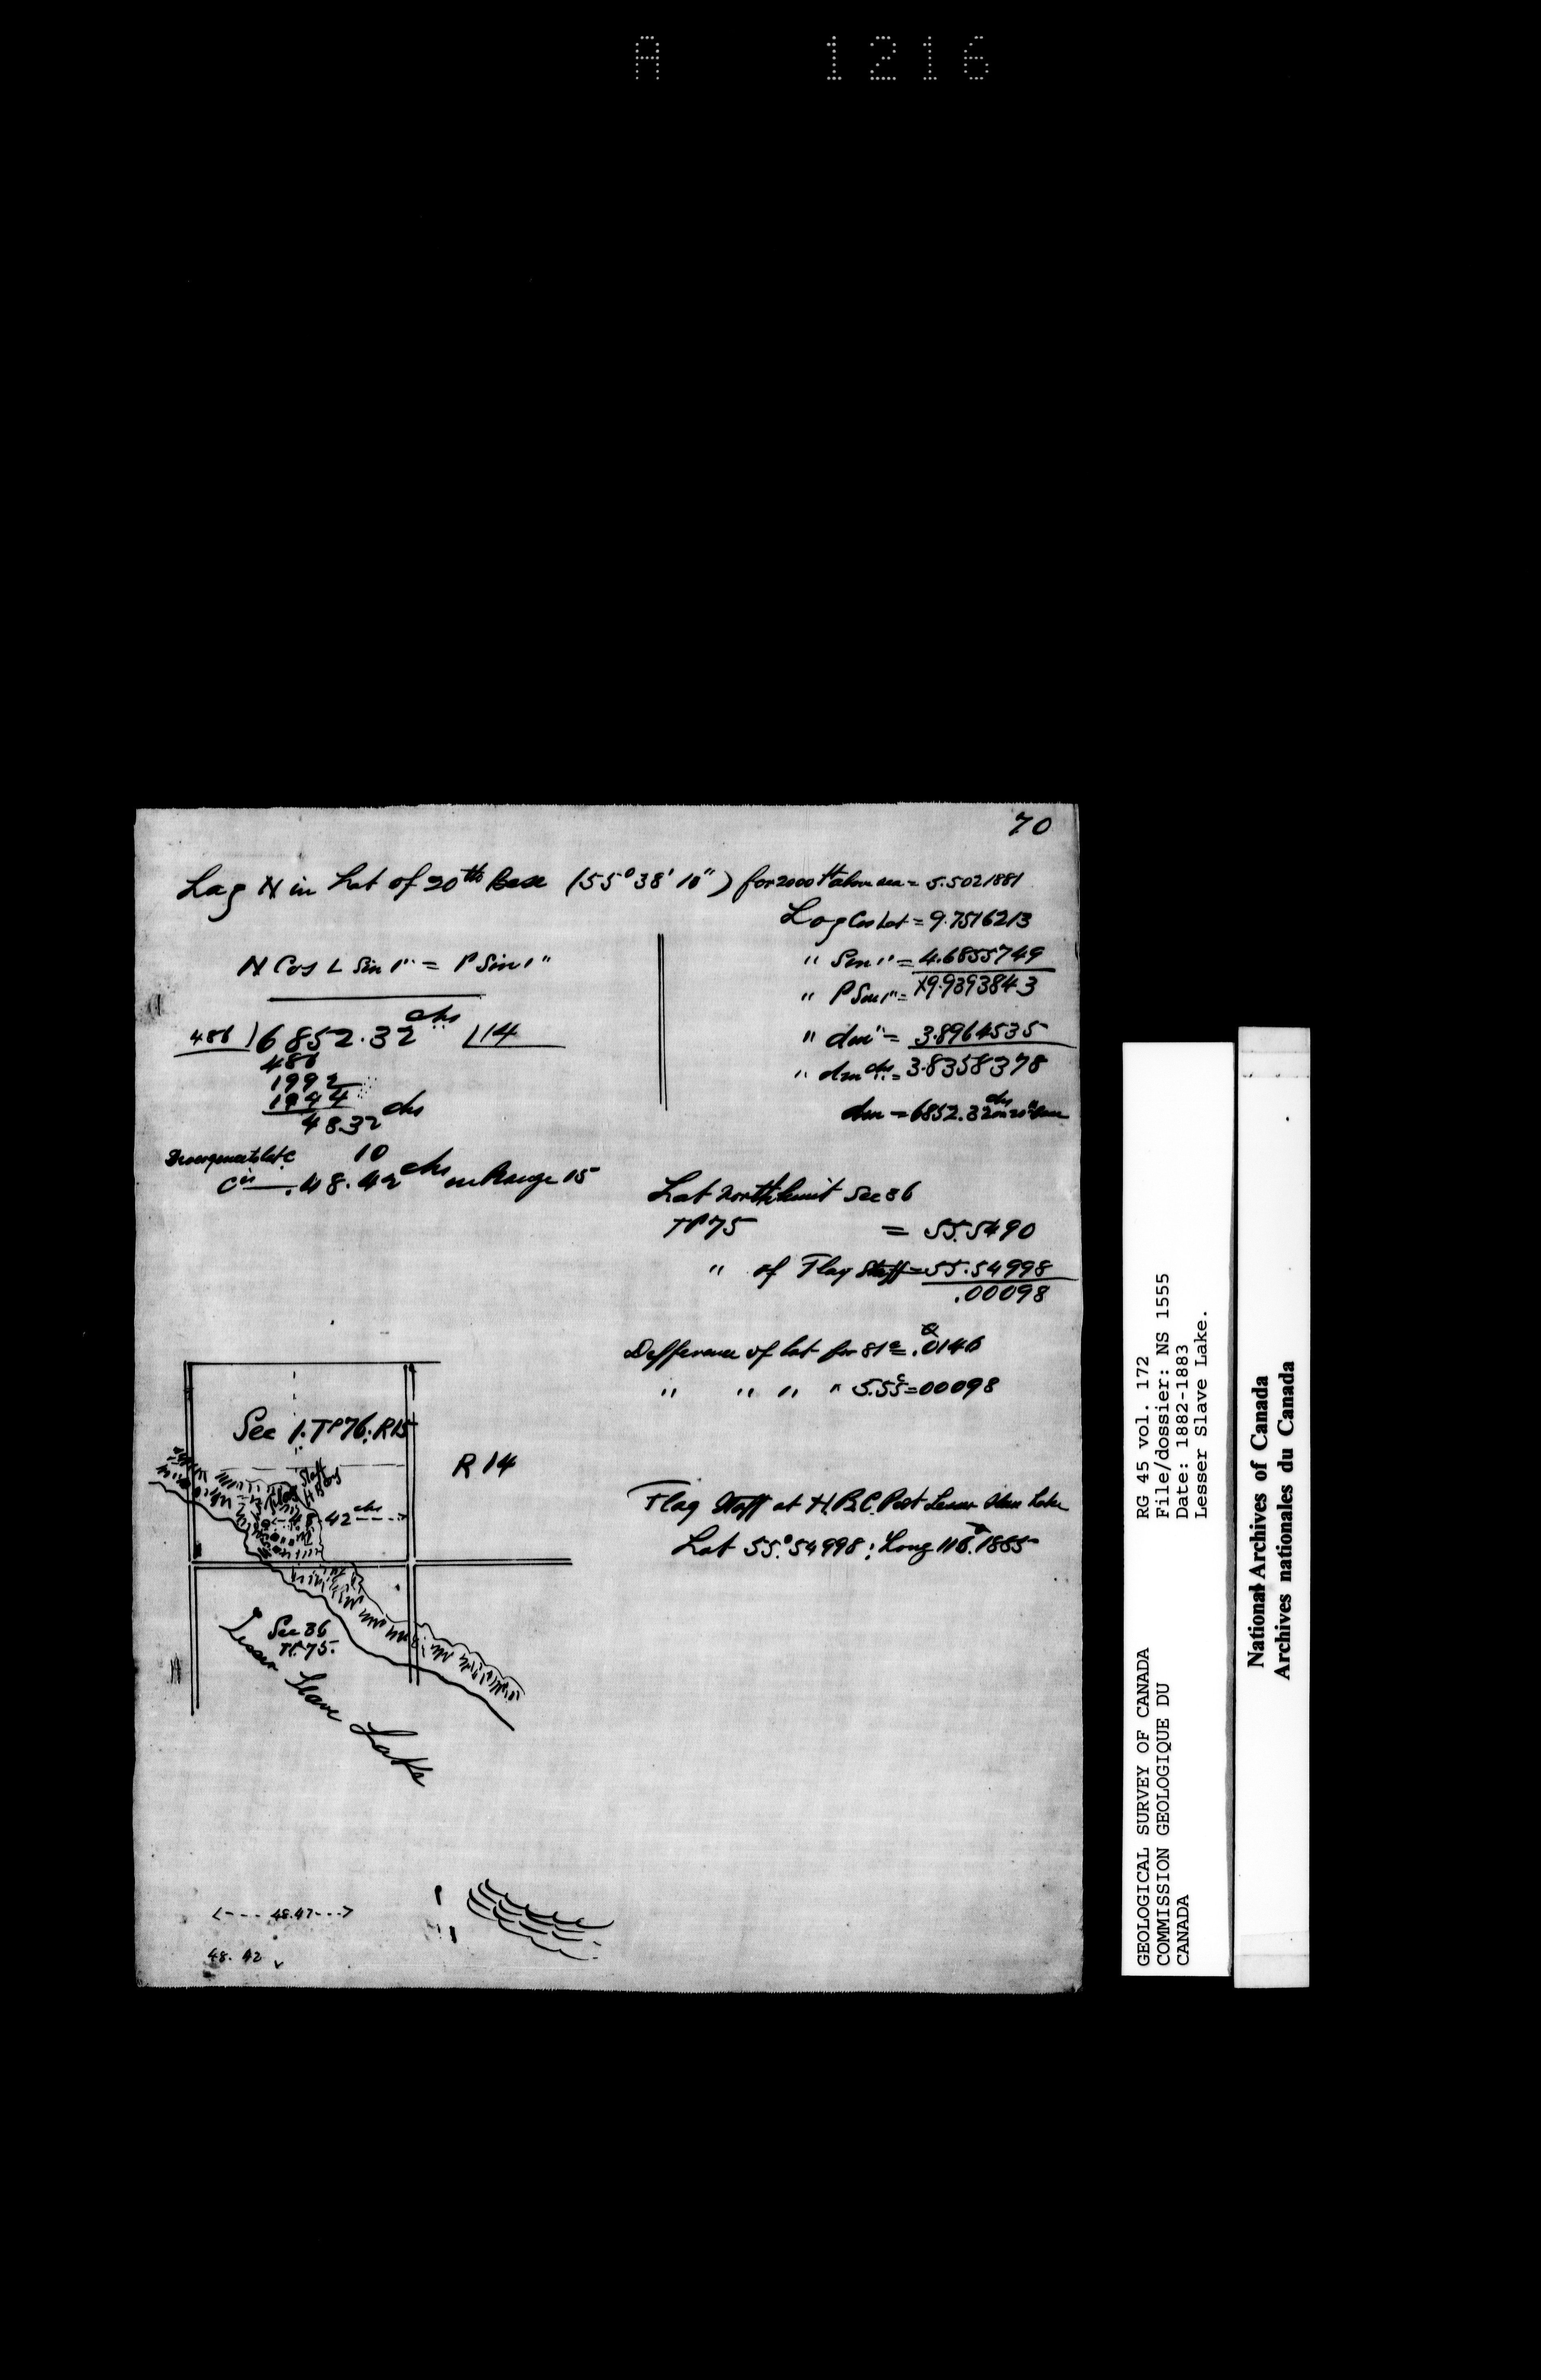 A 1216
70
Log N in Lat of 20th Base (55° 38' 10") for 2000 ft above sea = 5.5021881
Log Cos Lat = 9.7516213
" Sin 1" = 4.6855749
" P Sin 1" = 19.9393843
" dm" = 3.8964535
" dm chs = 3.8358378
dm = 6852.32 chs on 20th Base
N Cos L Sin 1" = P Sin 1"
486 ) 6852.32 chs | 14
486
1992
1944
48.32 chs
Divergence to lat C 10
48.42 chs on Range 15
Lat North limit Sec 36
TP 75 = 55.5490
" of Flag Staff = 55.54998
.00098
Difference of lat for 81c = .0146
" " " " 5.55c = 00098
Sec 1. TP 76. R15
R 14
Flag Staff H B Co's
48.42 chs
Flag Staff at H.B.C. Post Lesser Slave Lake
Lat 55°.54998 ; Long 116°.1865
Sec 36
TP. 75.
Lesser Slave Lake
<--- 48.47 --->
48.42
GEOLOGICAL SURVEY OF CANADA
COMMISSION GEOLOGIQUE DU
CANADA
RG 45 vol. 172
File/dossier: NS 1555
Date: 1882-1883
Lesser Slave Lake.
National Archives of Canada
Archives nationales du Canada